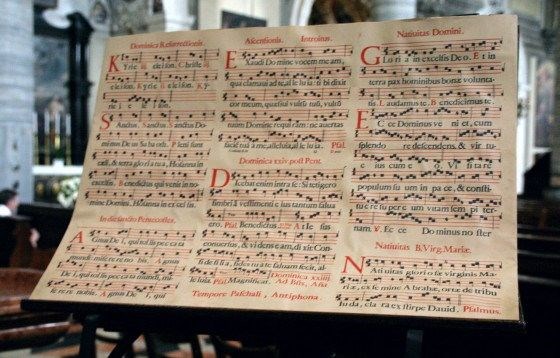 Dominica Resurrectionis.
Kyrie eleison. Christe
eleison. Ky
Sanctus Sanctus Sanctus Do-
minus De us Sabaoth. Pleni sunt
cæli, & terra gloria tua, Hosanna in
excelsis. Benedictus qui venit in no-
mine Domini. Hosanna in ex cel sis.
In die sancto Pentecostes.
Agnus De i, qui tollis pec ca ta
mundi: mise re re no bis. Agnus
De i, qui tollis pec ca ta mundi, mi-
se re re nobis. Agnus De i, qui
Ascensionis. Introitus.
Exaudi Domine vocem meam,
qua clamavi ad te, al le lu ia: ti bi dixit
cor meum, quæsivi vultū tuū, vultū
tuum Domine requi ram: ne avertas
faciē tuā a me, alleluia, al le lu ia. Psal.
Dominica xxiv. post Pent.
Dicebat enim intra se: Si tetigero
fimbriā vestimenti e ius tantum salua
ero. Psal. Benedictus At Ie sus
conversus, & videns eam, dixit: Con-
fide filia, fides tua te salvam fecit, al-
le luia. Psal. Magnificat. Dominica xxiiii
Ad Bñs, Aña
Tempore Paschali, Antiphona.
Nativitas Domini.
Gloria in excelsis Deo. Et in
terra pax hominibus bonæ volunta-
tis. Laudamus te. Benedicimus te.
Ecce Dominus veni et, cum
splendo re descendens, & vir tu-
e ius cum e o, Vi si ta re
populum su um in pa ce, & consti-
tue re su per e um vitam sem pi ter-
nam. V. Ec ce Do minus no ster
Nativitas B. Virg. Mariæ.
Nativitas gloriosæ virginis Ma-
riæ, ex se mine Abrahæ, ortæ de tribu
Iuda, cla ra ex stirpe David. Psalmus.